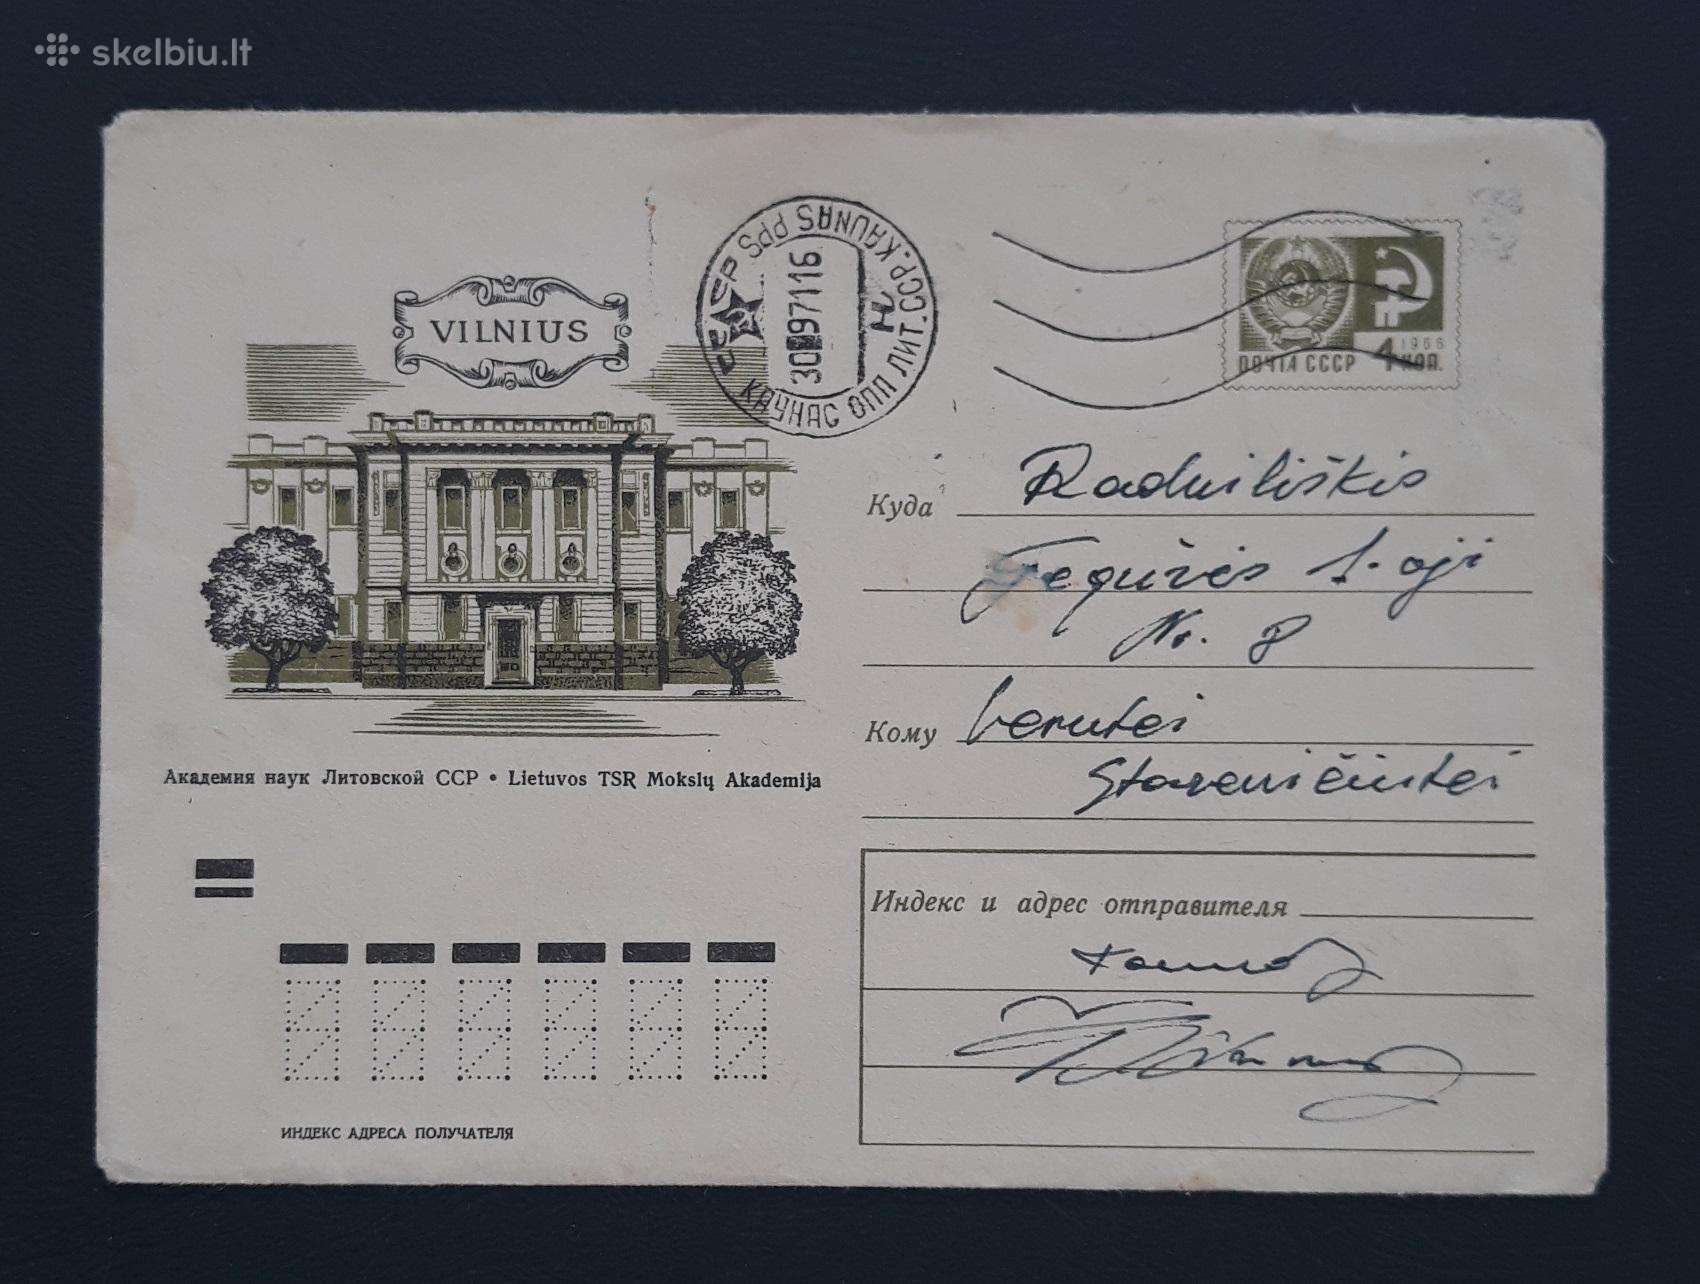 skelbiu.lt
СССР KAUNAS PPS ЛИТ.ССР.
КАУНАС ОПП
Н
971116
1966
ПОЧТА СССР 4 КОП.
VILNIUS
Куда Radviliškis
Gegužės 1-oji
Nr. 8
Кому Verutei
Академия наук Литовской ССР • Lietuvos TSR Mokslų Akademija
Индекс и адрес отправителя
Kaunas
ИНДЕКС АДРЕСА ПОЛУЧАТЕЛЯ